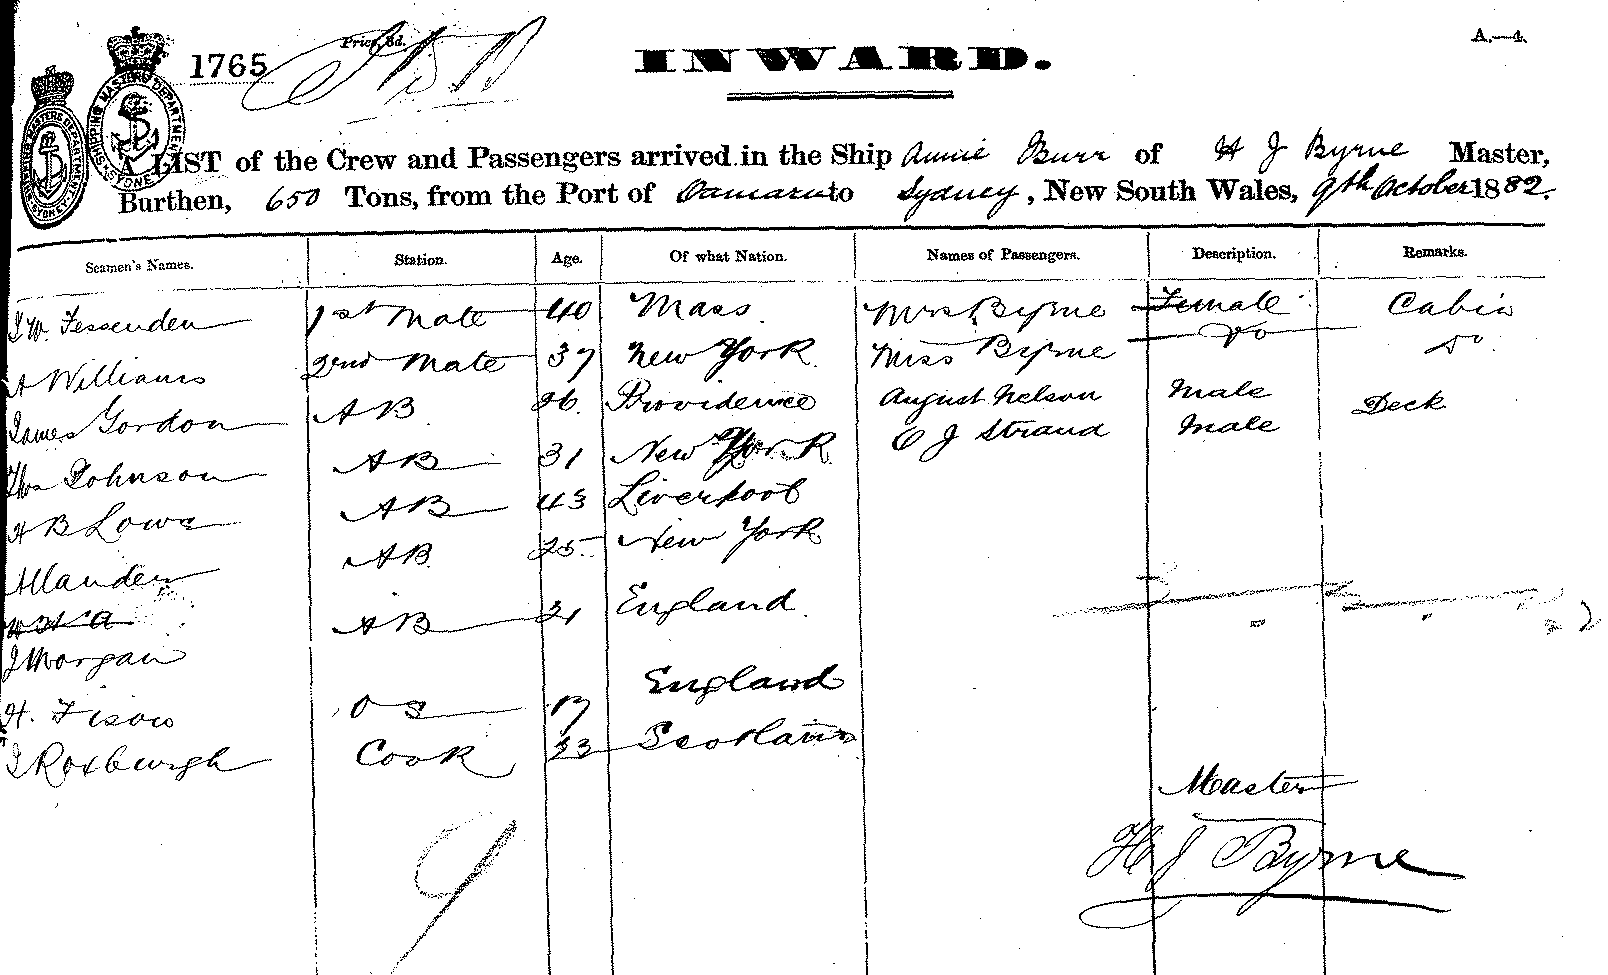 1765
Price, 3d.
INWARD.
A.—4.
A LIST of the Crew and Passengers arrived in the Ship Annie Burr of H J Byrne Master,
Burthen, 650 Tons, from the Port of Oamaru to Sydney, New South Wales, 9th October 1882.
Seamen's Names. Station. Age. Of what Nation. Names of Passengers. Description. Remarks.
Fessenden 1st Mate 40 Mass Mrs Byrne Female Cabin
A Williams 2nd Mate 37 New York Miss Byrne Do Do
James Gordon A B 26 Providence August Nelson Male Deck
Thos Johnson A B 31 New York C J Strand Male
H B Lowe A B 43 Liverpool
A B 25 New York
J Morgan A B 21 England
H. Tison O S 19 England
J Roxburgh Cook 33 Scotland
Master
H J Byrne
9
SHIPPING MASTERS DEPARTMENT SYDNEY
SHIPPING MASTERS DEPARTMENT SYDNEY